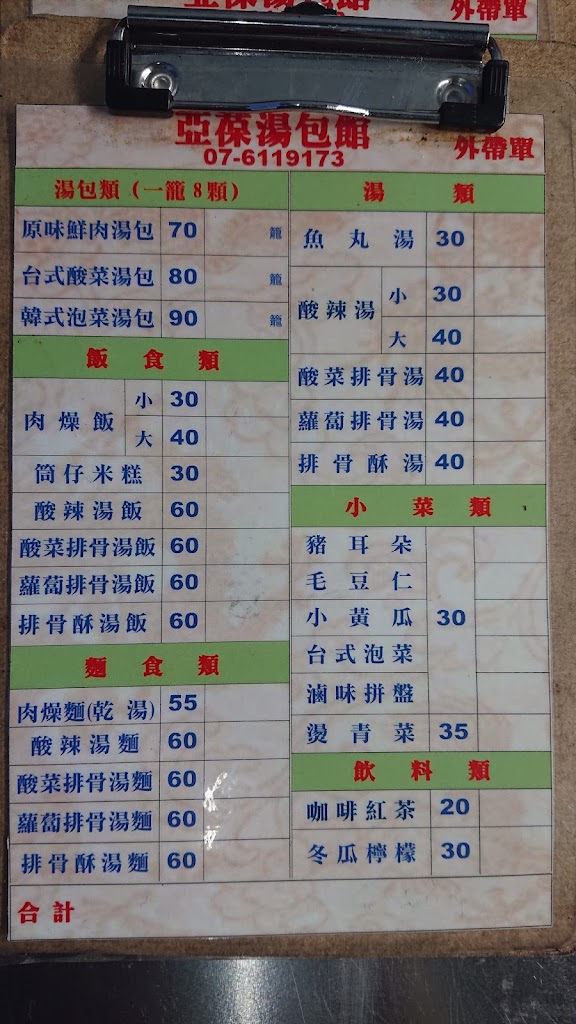 外帶單
亞葆湯包館
07-6119173
外帶單
湯包類(一籠8顆)
原味鮮肉湯包 70 籠
台式酸菜湯包 80 籠
韓式泡菜湯包 90 籠
飯食類
肉燥飯 小 30
大 40
筒仔米糕 30
酸辣湯飯 60
酸菜排骨湯飯 60
蘿蔔排骨湯飯 60
排骨酥湯飯 60
麵食類
肉燥麵(乾 湯) 55
酸辣湯麵 60
酸菜排骨湯麵 60
蘿蔔排骨湯麵 60
排骨酥湯麵 60
湯類
魚丸湯 30
酸辣湯 小 30
大 40
酸菜排骨湯 40
蘿蔔排骨湯 40
排骨酥湯 40
小菜類
豬耳朵
毛豆仁
小黃瓜 30
台式泡菜
滷味拼盤
燙青菜 35
飲料類
咖啡紅茶 20
冬瓜檸檬 30
合計